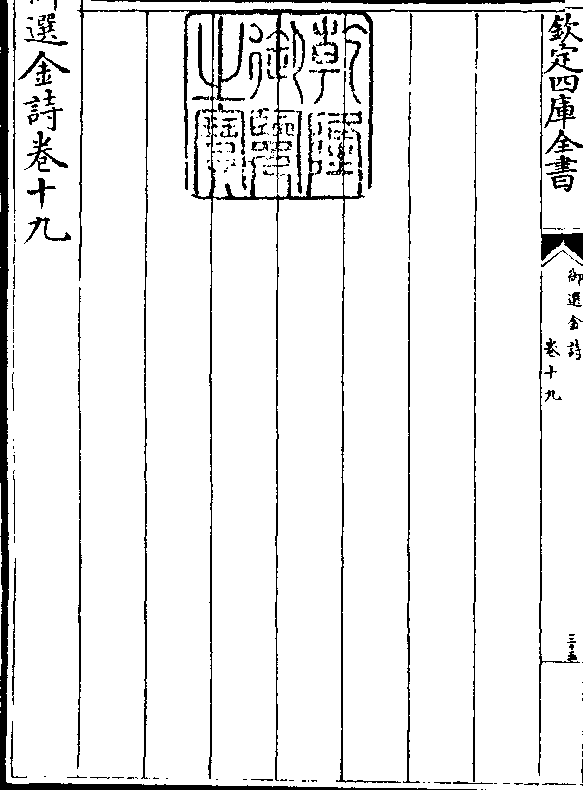 欽定四庫全書
御選金詩
卷十九
三十五
乾隆御覽之寶
御選金詩卷十九